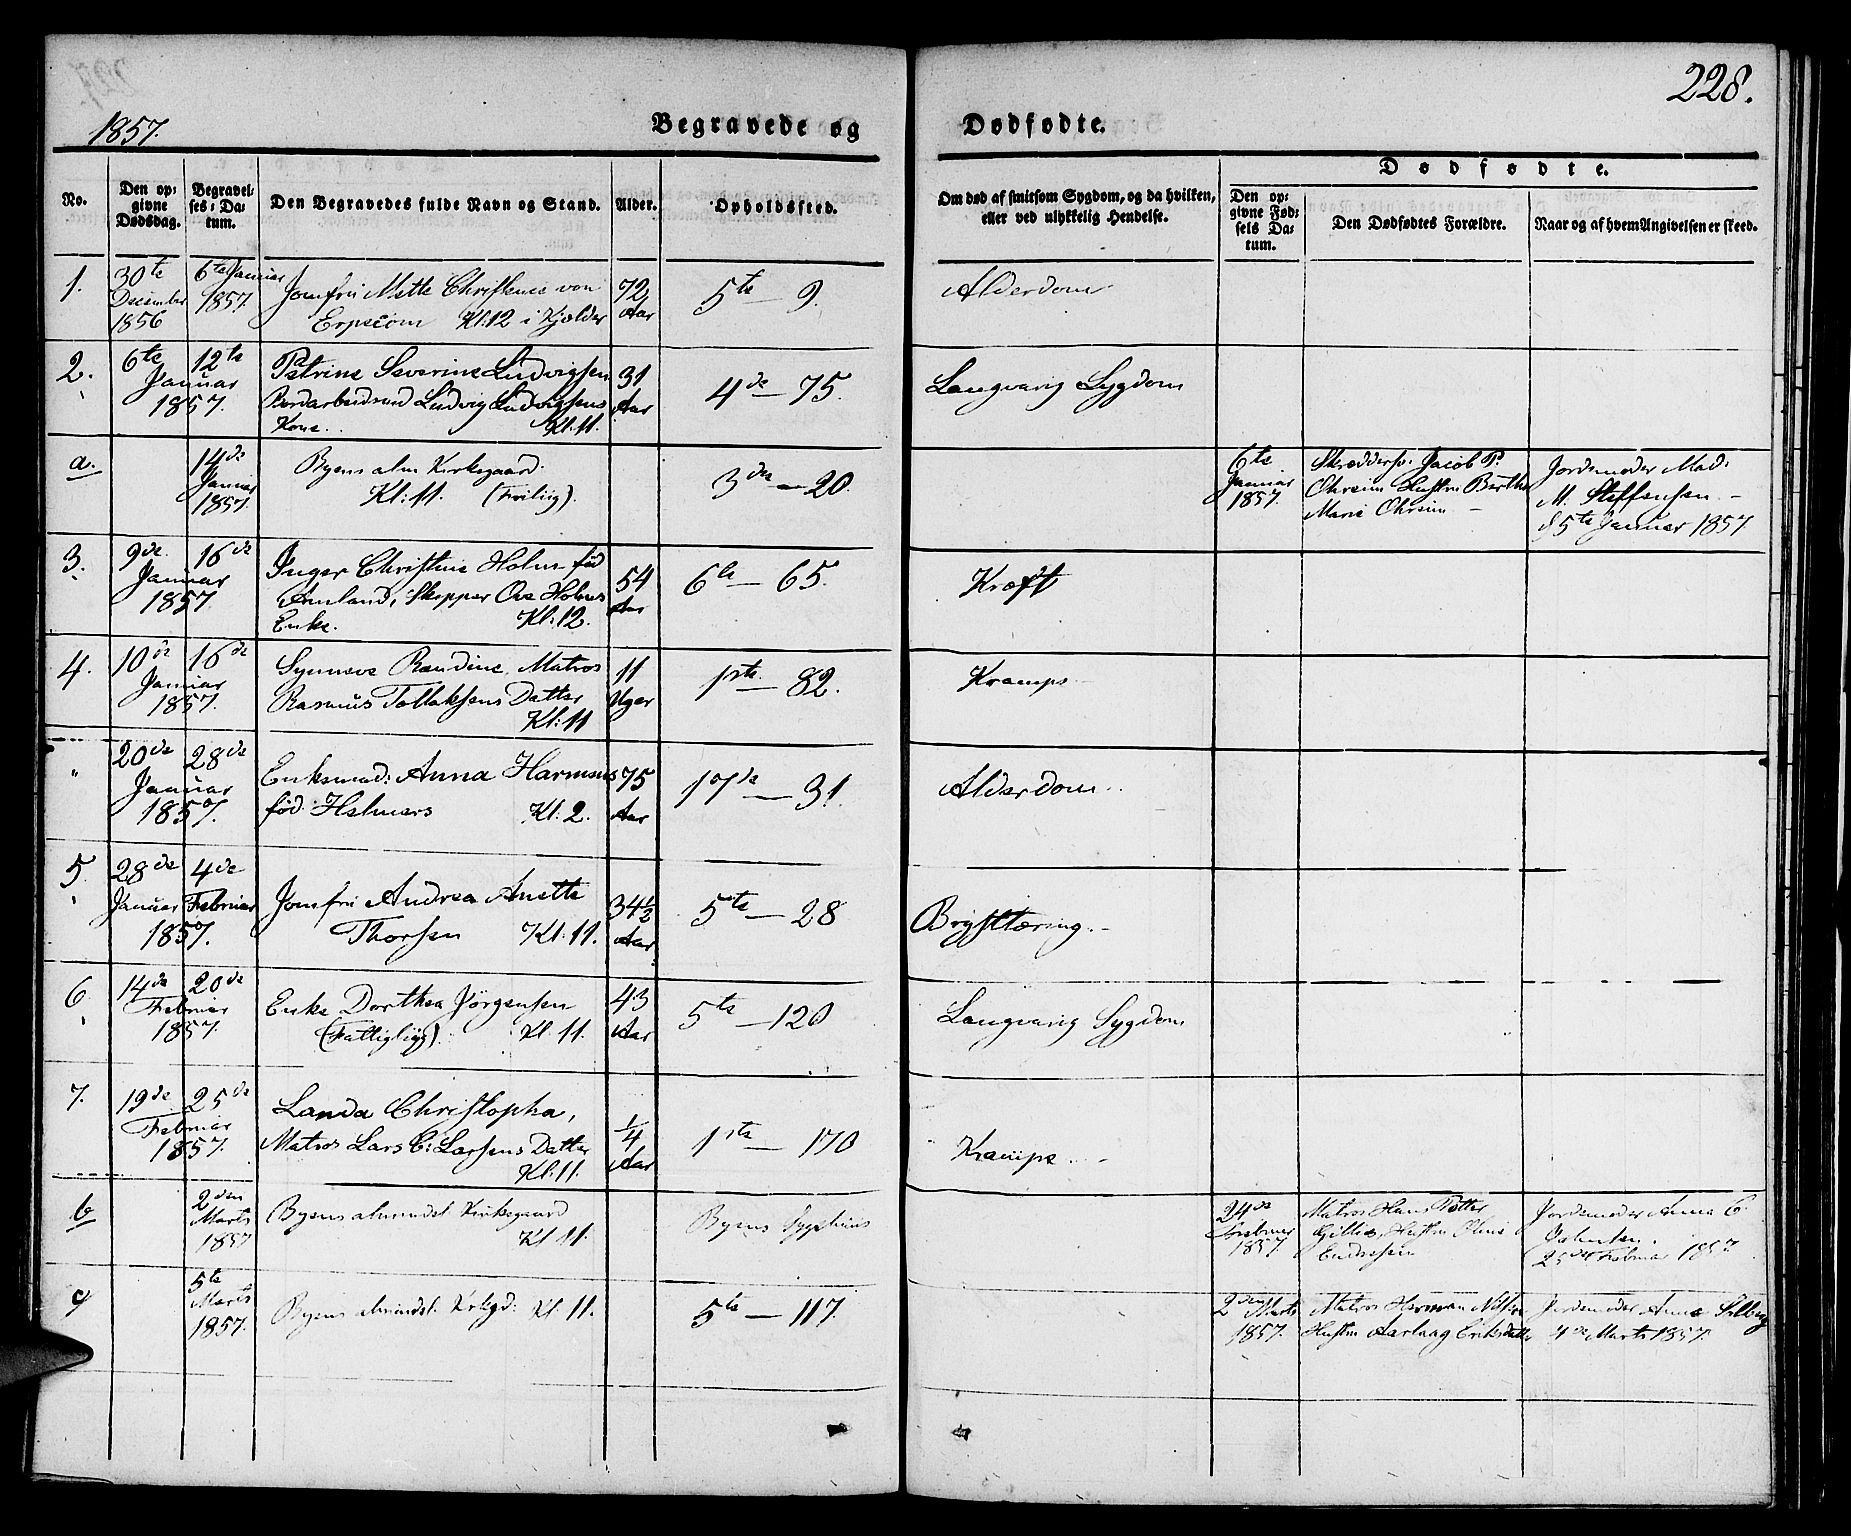 228.
1857.
Begravede og Dødfødte.
No.
Den opgivne Dødsdag.
Begravelses-Datum.
Den Begravedes fulde Navn og Stand.
Alder.
Opholdssted.
Om død af smitsom Sygdom, og da hvilken, eller ved ulykkelig Hendelse.
Dødfødte.
Den opgivne Fødsels Datum.
Den Dødfødtes Forældre.
Naar og af hvem Angivelsen er skeed.
1.
30te December 1856
6te Januar 1857.
Jomfru Mette Christence von
Erpecom Kl: 12 i Kjælder
72 Aar
5te — 9.
Alderdom
2.
6te 12te
Januar
1857.
Petrine Severine Ludvigsen
Ludvig Ludvigsens
Kone. Kl: 11.
31 Aar
4de — 75.
Langvarig Sygdom
a.
14de Januar 1857.
Byens alm Kirkegaard.
Kl: 11. (Friliig).
3die — 20.
6te Januar 1857.
Jacob P.
Hustru Berthe
Marie
Jordemoder Mad:
M. Steffensen —
Januar 1857
3.
9de 16de
Januar
1857
Inger Christine Holm fød
Amland, Skipper Ove Holms
Enke. Kl: 12.
54 Aar
6te — 65.
Kræft
4.
10de 16de
Januar
1857.
Synneve Randine, Matros
Rasmus Tollaksens Datter
Kl: 11
11 Uger
1ste — 82.
Krampe
"
20de 28de
Januar
1857.
Enkemad: Anna Harmens
fød: Helmers Kl: 2.
75 Aar
17de — 31.
Alderdom.
5.
28de Januar
4de Februar
1857.
Jomfru Andrea Anette
Thorsen Kl: 11.
34½ Aar
5te — 28
Brysttæring. —
6.
14de 20de
Februar
1857.
Enke Dorthea Jørgensen
(Fattigliig). Kl: 11.
43 Aar
5te — 120
Langvarig Sygdom
7.
19de 25de
Februar
1857.
Landa Christopha,
Matros Lars C: Larsens Datter
Kl: 11.
¼ Aar
1ste — 170
Krampe. —
b
2den Marts 1857
Byens almindel. Kirkegaard
Kl 11.
Byens Sygehuus
24de Februar 1857.
Matros Hans Petter
Hustru Oline
Endresen
Jordemoder Anna C.
25de Februar 1857.
c
5te Marts 1857.
Byens almindel. Kirkegd: Kl 11.
5te — 117.
2den Marts 1857.
Matros Herman
Hustru Aarlaug Eriksdatter
Jordemoder Anna
4de Marts 1857.